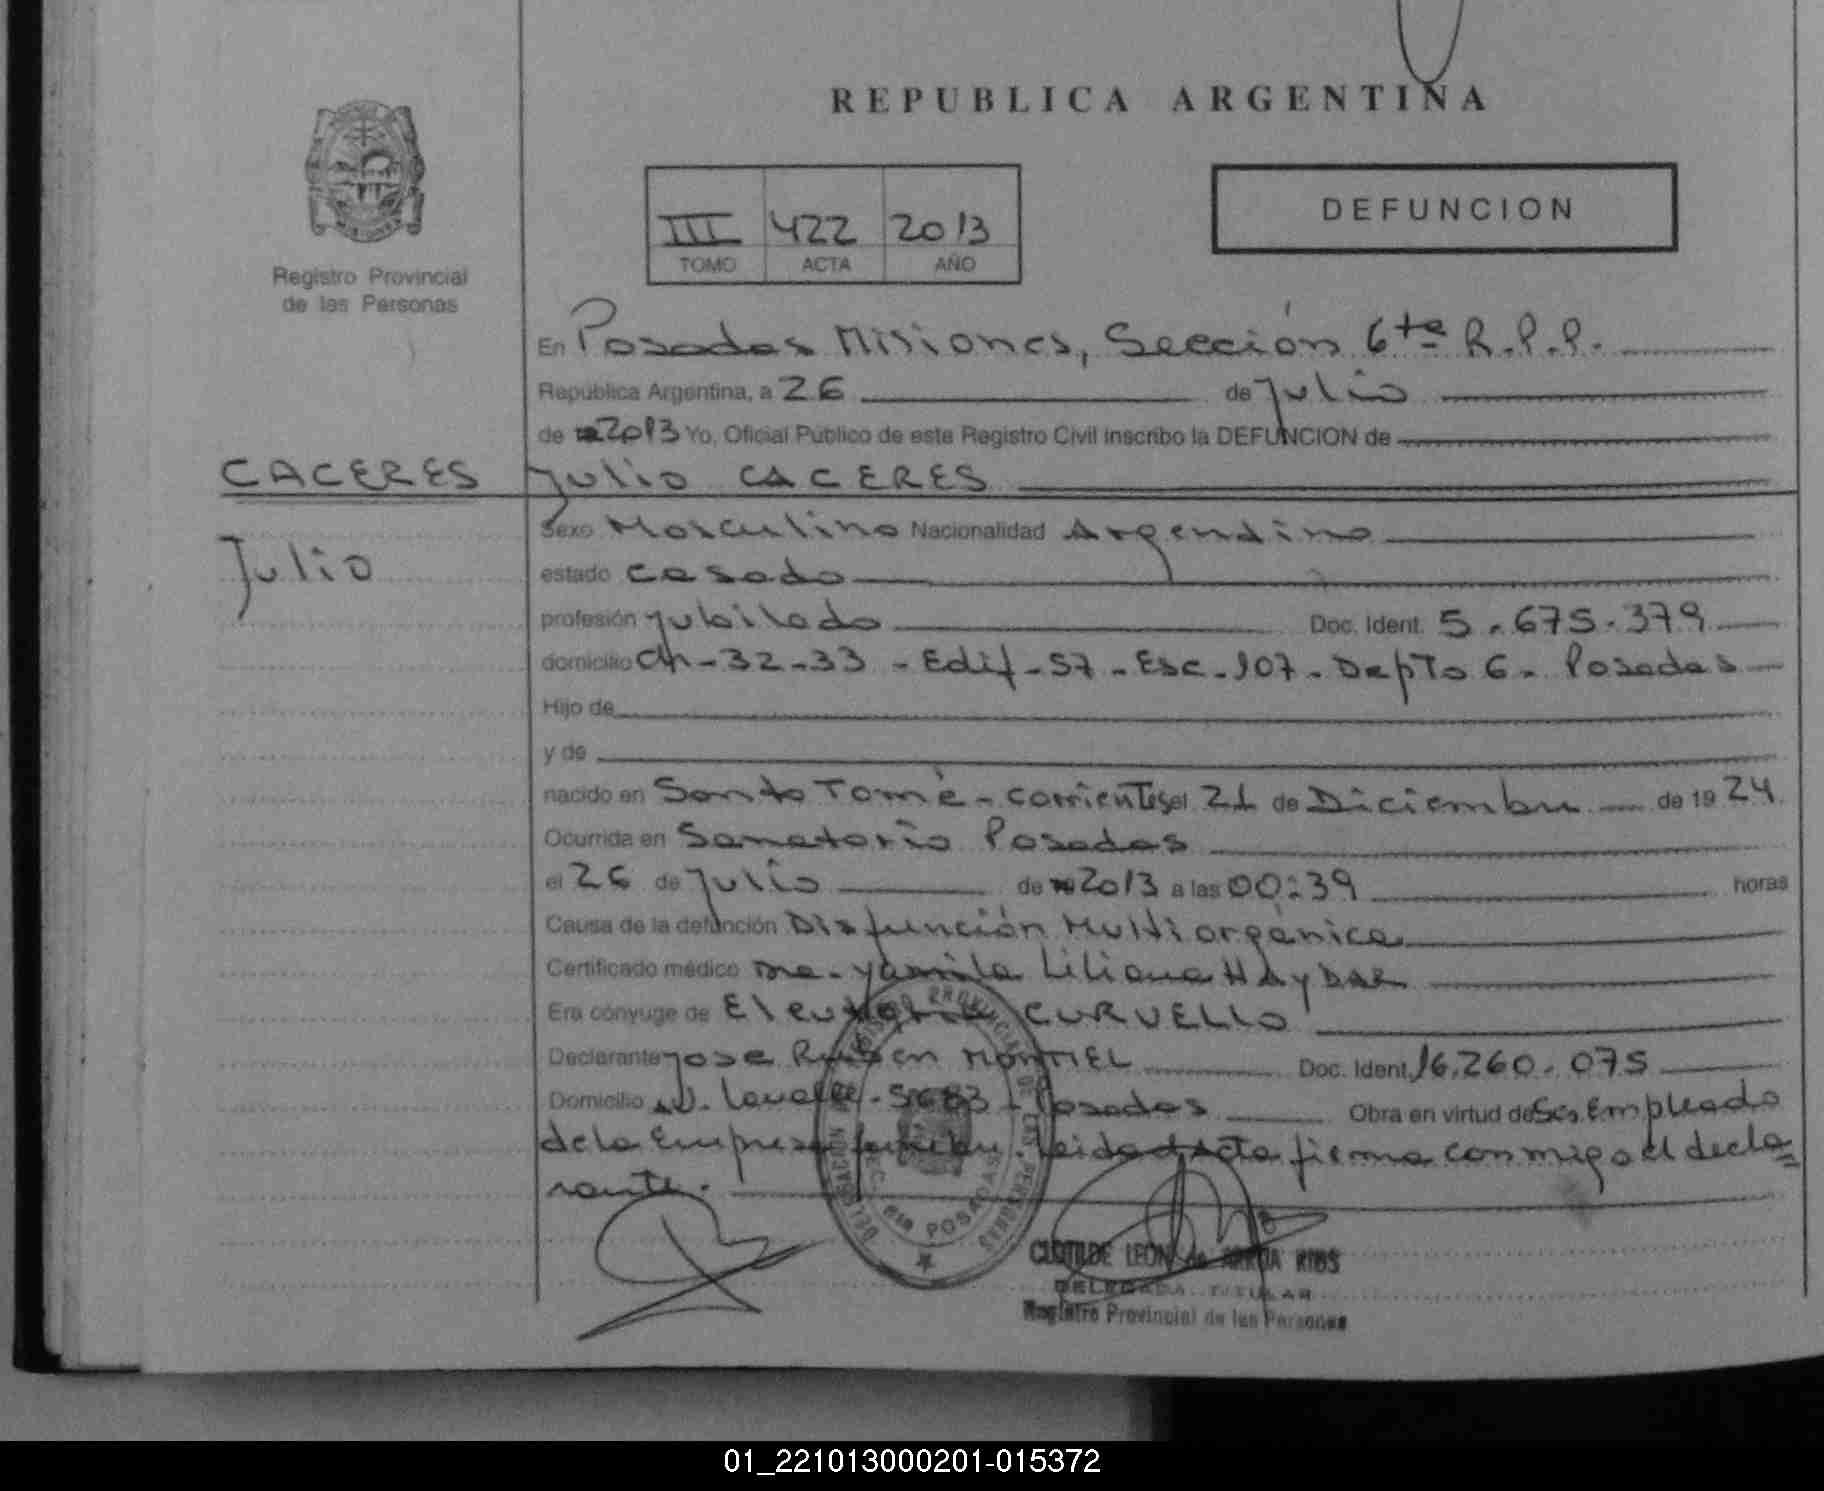 REPUBLICA ARGENTINA
Registro Provincial
de las Personas
III 422 2013
TOMO ACTA AÑO
DEFUNCION
En Posadas Misiones, Sección 6ta R.P.P.
República Argentina, a 26 de Julio
de 2013 Yo, Oficial Público de este Registro Civil inscribo la DEFUNCION de
CACERES Julio CACERES
Julio
Sexo Masculino Nacionalidad Argentino
estado casado
profesión jubilado Doc. Ident. 5.675.379
domicilio Ch-32-33 - Edif-57-Esc-107-Depto 6- Posadas
Hijo de
y de
nacido en Santo Tomé - Corrientes el 21 de Diciembre de 1924
Ocurrida en Sanatorio Posadas
el 26 de Julio de 2013 a las 00:39 horas
Causa de la defunción Disfunción Multiorgánica
Certificado médico Yamila Liliana HAYDAR
Era cónyuge de CURVELLO
Declarante Jose Ruben MONTIEL Doc. Ident. 16.260.075
Domicilio Posadas Obra en virtud de Empleado
de la Empresa Leida Acta firma conmigo el decla=
rante.
CLOTILDE LEON de RIOS
DELEGADA TITULAR
Registro Provincial de las Personas
01_221013000201-015372